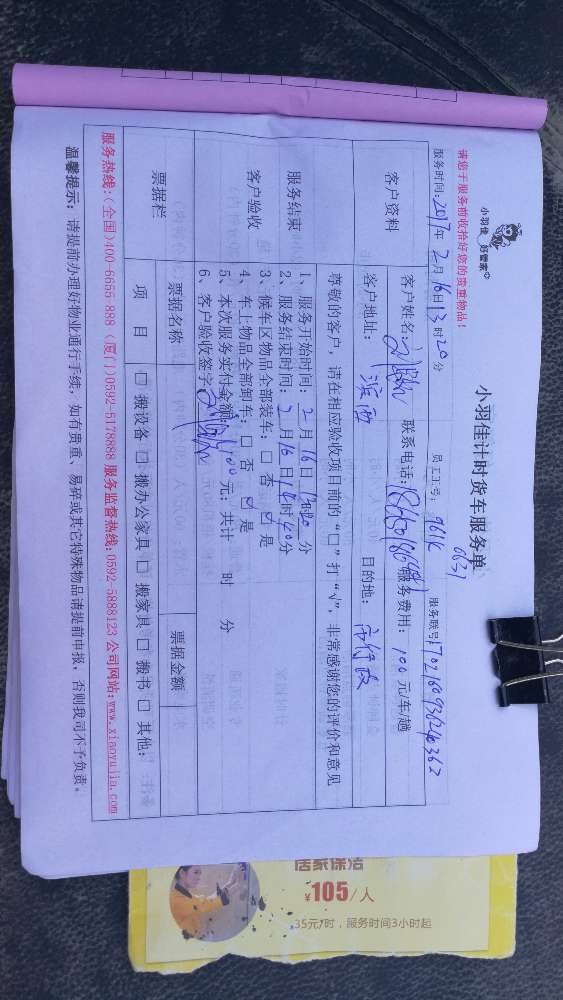 小羽佳 好管家
小羽佳计时货车服务单
请您于服务前收拾好您的贵重物品!
服务时间: 2017年 2月16日13时20分 员工工号: 961K 0631 服务联号
客户资料 客户姓名: 联系电话: 服务费用: 100 元/车/趟
客户地址: 滨西 目的地: 市行政
尊敬的客户, 请在相应验收项目前的“□”打“√”, 非常感谢您的评价和意见
服务结束
客户验收
1、服务开始时间: 2月16日 分
2、服务结束时间: 2月16日14时40分
3、候车区物品全部装车: □ 否 ☑ 是
4、车上物品全部卸车: □ 否 ☑ 是
5、本次服务实付金额 100 元; 共计 时 分
6、客户验收签字
票据栏 票据名称 票据金额
项 目 □ 搬设备 □ 搬办公家具 □ 搬家具 □ 搬书 □ 其他:
服务热线: (全国)400-6655-888 (厦门)0592-5178888 服务监督热线: 0592-5888123 公司网站: www.xiaoyujia.com
温馨提示: 请提前办理好物业通行手续, 如有贵重、易碎或其它特殊物品请提前申报, 否则我司不予负责。
居家保洁
¥105/人
35元/时, 服务时间3小时起